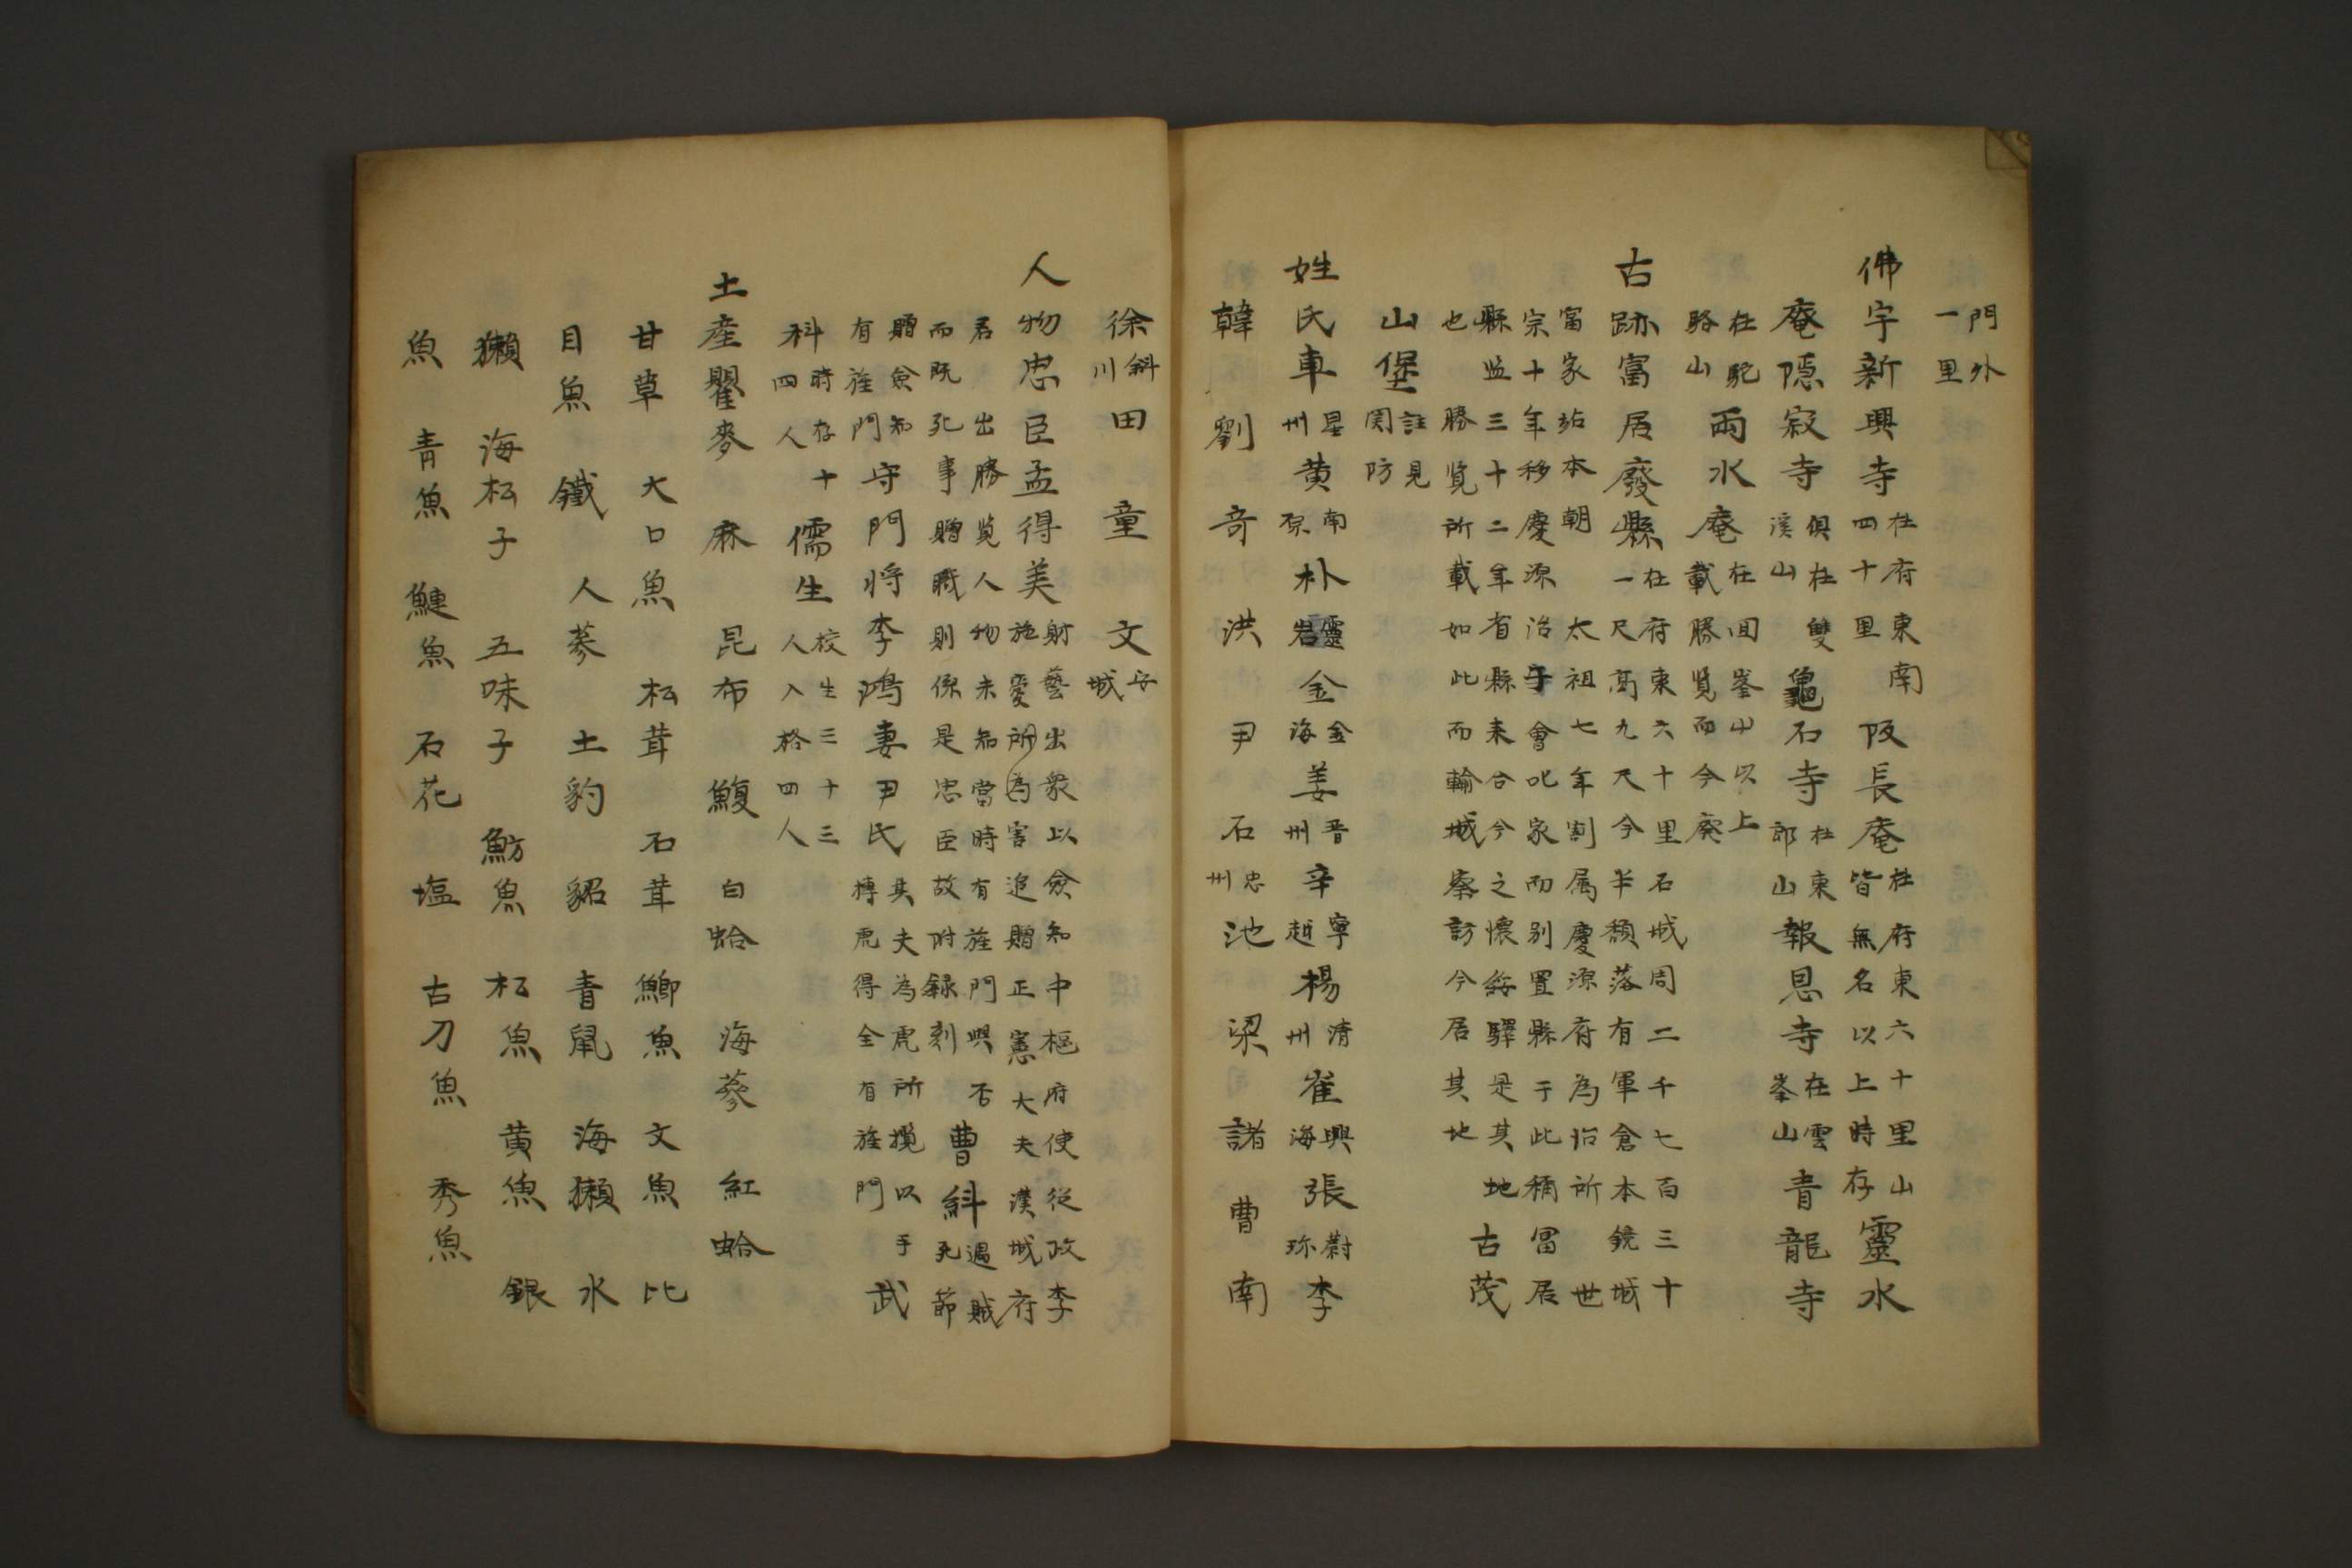 門外
一里
佛宇新興寺在府東南四十里阪長庵在府東六十里山皆無名以上時存靈水
庵隱寂寺俱在雙溪山龜石寺在東郎山報恩寺在雲峯山青龍寺
在駝駱山兩水庵在回峯山以上載勝覧而今廢
古跡富居廢縣在府東六十里石城周二千七百三十一尺高九尺今半頽落有軍倉本鏡城
富家站本朝太祖七年割属慶源府為治所世
宗十年移慶源治于會叱家而别置縣于此稱富居
縣监三十二年省縣来合今之懷綏驛是其地古茂
也勝覧所載如此而輪城察訪今居其地
山堡註見関防
姓氏車星州黄南原朴靈岩金金海姜晋州辛寧越楊清州崔興海張蔚珎李
韓劉奇洪尹石忠州池梁諸曹南
徐斜川田童文安城
人物忠臣孟得美射藝出衆以僉知中樞府使從政李
施愛所為害追贈正憲大夫漢城府
君出勝覧人物未知當時有旌門與否曹糾遇賊死節
而既死事贈職則係是忠臣故附録刻
贈僉知有旌門守門将李鴻妻尹氏其夫為虎所攬以手搏虎得全有旌門武
科時存十四人儒生校生三十三人入格四人
土産瞿麥麻昆布鰒白蛤海蔘紅蛤
甘草大口魚松茸石茸鰤魚文魚比
目魚鐵人蔘土豹貂青鼠海獺水
獺海松子五味子魴魚松魚黄魚銀
魚青魚鰱魚石花塩古刀魚秀魚